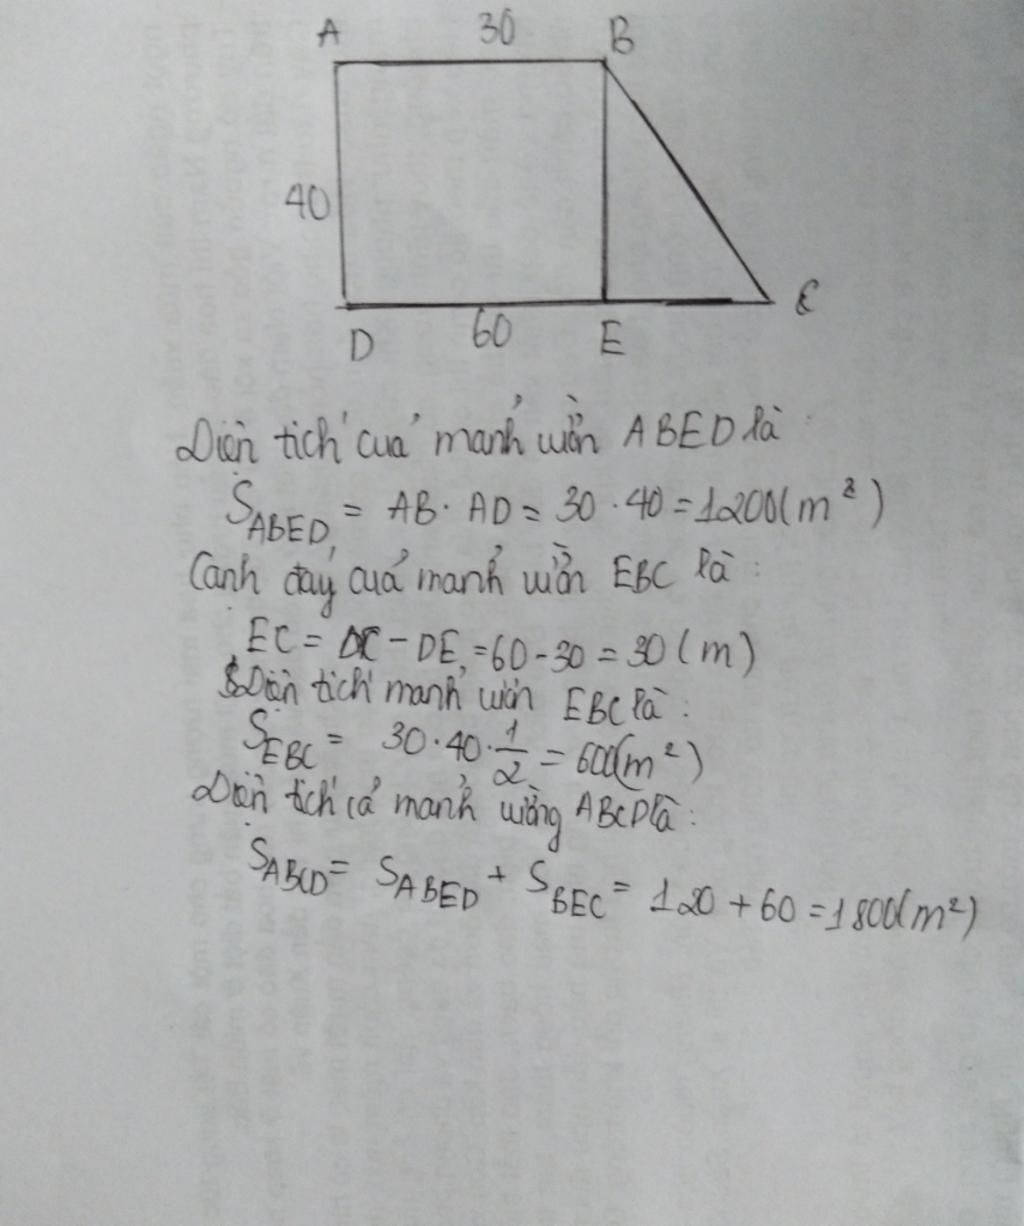 A 30 B
40
D 60 E C
Diện tích của mảnh vườn ABED là
S_ABED = AB. AD = 30 . 40 = 1200(m²)
Cạnh đáy của mảnh vườn EBC là :
EC = DC - DE = 60 - 30 = 30 (m)
Diện tích mảnh vườn EBC là :
S_EBC = 30 . 40 . 1/2 = 600(m²)
Diện tích cả mảnh vường ABCD là :
S_ABCD = S_ABED + S_BEC = 120 + 60 = 1800(m²)